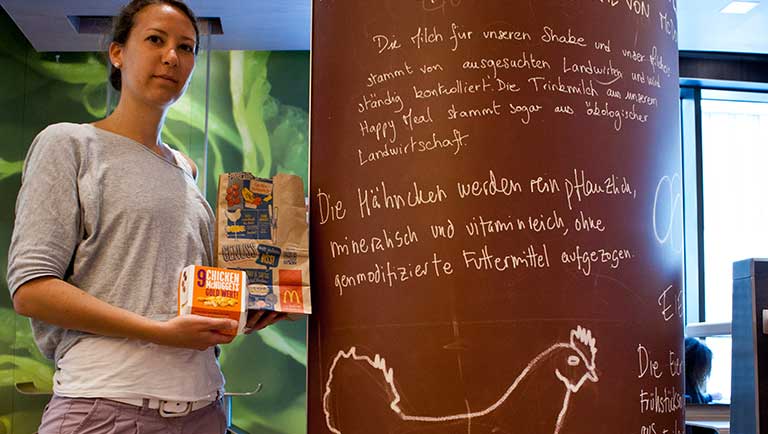 VON McD
Die Milch für unseren Shake und unser
stammt von ausgesuchten Landwirten und wird
ständig kontrolliert. Die Trinkmilch aus unserem
Happy Meal stammt sogar aus ökologischer
Landwirtschaft.
Die Hähnchen werden rein pflanzlich,
mineralisch und vitaminreich, ohne
genmodifizierte Futtermittel aufgezogen.
Die Eier
Frühstücks
aus
9 CHICKEN
McNUGGETS
GOLD WERT!
GENUSS